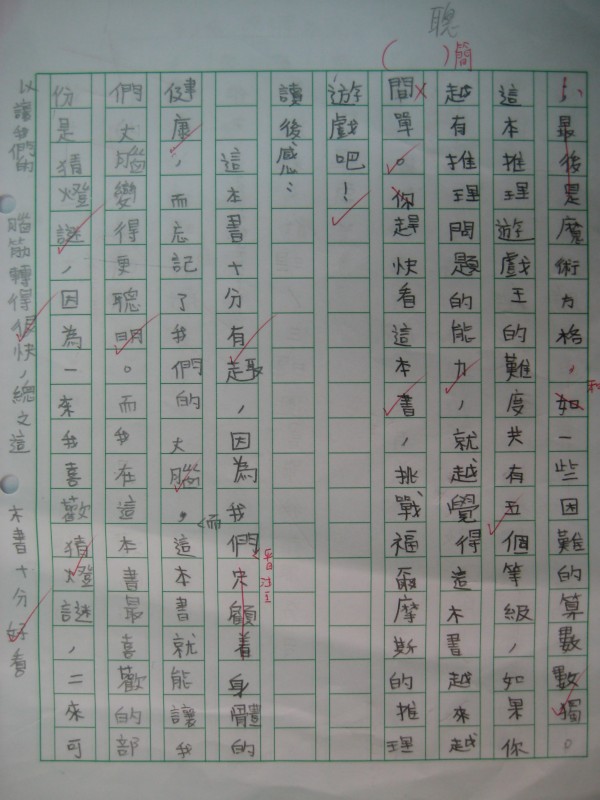 聰
( )簡
最後是魔術方格，如一些困難的算數數獨。
和
這本推理遊戲王的難度共有五個等級，如果你
越有推理問題的能力，就越覺得這本書越來越
間單。你趕快看這本書，挑戰福爾摩斯的推理
遊戲吧！
讀後感：
這本書十分有趣，因為我們只顧着身體的
會注
健康，而忘記了我們的大腦，這本書就能讓我
而
們大腦變得更聰明。而我在這本書最喜歡的部
份是猜燈謎，因為一來我喜歡猜燈謎，二來可
以讓我們的腦筋轉得很快，總之這本書十分好看